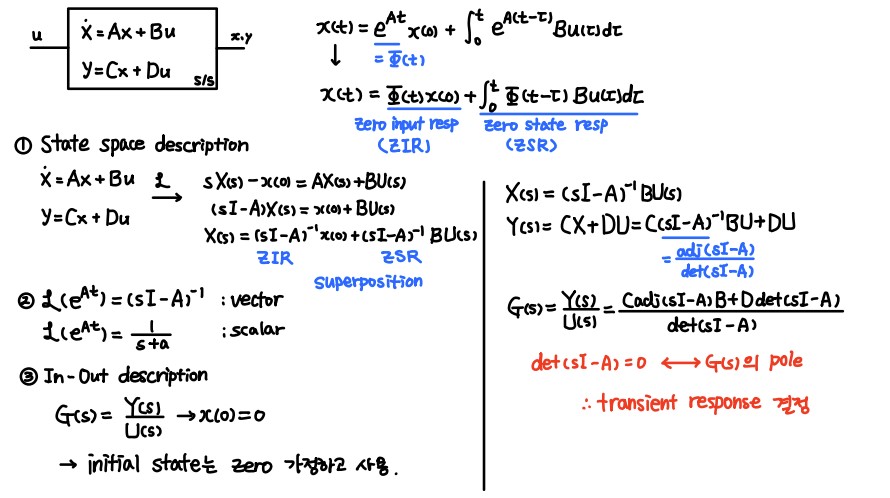 u
ẋ = Ax + Bu
y = Cx + Du
x.y
s/s
x(t) = e^{At} x(0) + ∫₀ᵗ e^{A(t-τ)} Bu(τ)dτ
↓ = Φ(t)
x(t) = Φ(t)x(0) + ∫₀ᵗ Φ(t-τ) Bu(τ)dτ
Zero input resp Zero state resp
(ZIR) (ZSR)
① State space description
ẋ = Ax + Bu ℒ→ sX(s) - x(0) = AX(s) + BU(s)
y = Cx + Du (sI-A)X(s) = x(0) + BU(s)
X(s) = (sI-A)⁻¹x(0) + (sI-A)⁻¹ BU(s)
ZIR ZSR
superposition
② ℒ(e^{At}) = (sI-A)⁻¹ : vector
ℒ(e^{At}) = 1/(s+a) : scalar
③ In-Out description
G(s) = Y(s)/U(s) → x(0) = 0
→ initial state는 zero 가정하고 사용.
X(s) = (sI-A)⁻¹ BU(s)
Y(s) = CX + DU = C(sI-A)⁻¹BU + DU
= adj(sI-A)/det(sI-A)
G(s) = Y(s)/U(s) = (Cadj(sI-A)B + D det(sI-A))/det(sI-A)
det(sI-A) = 0 ↔ G(s)의 pole
∴ transient response 결정